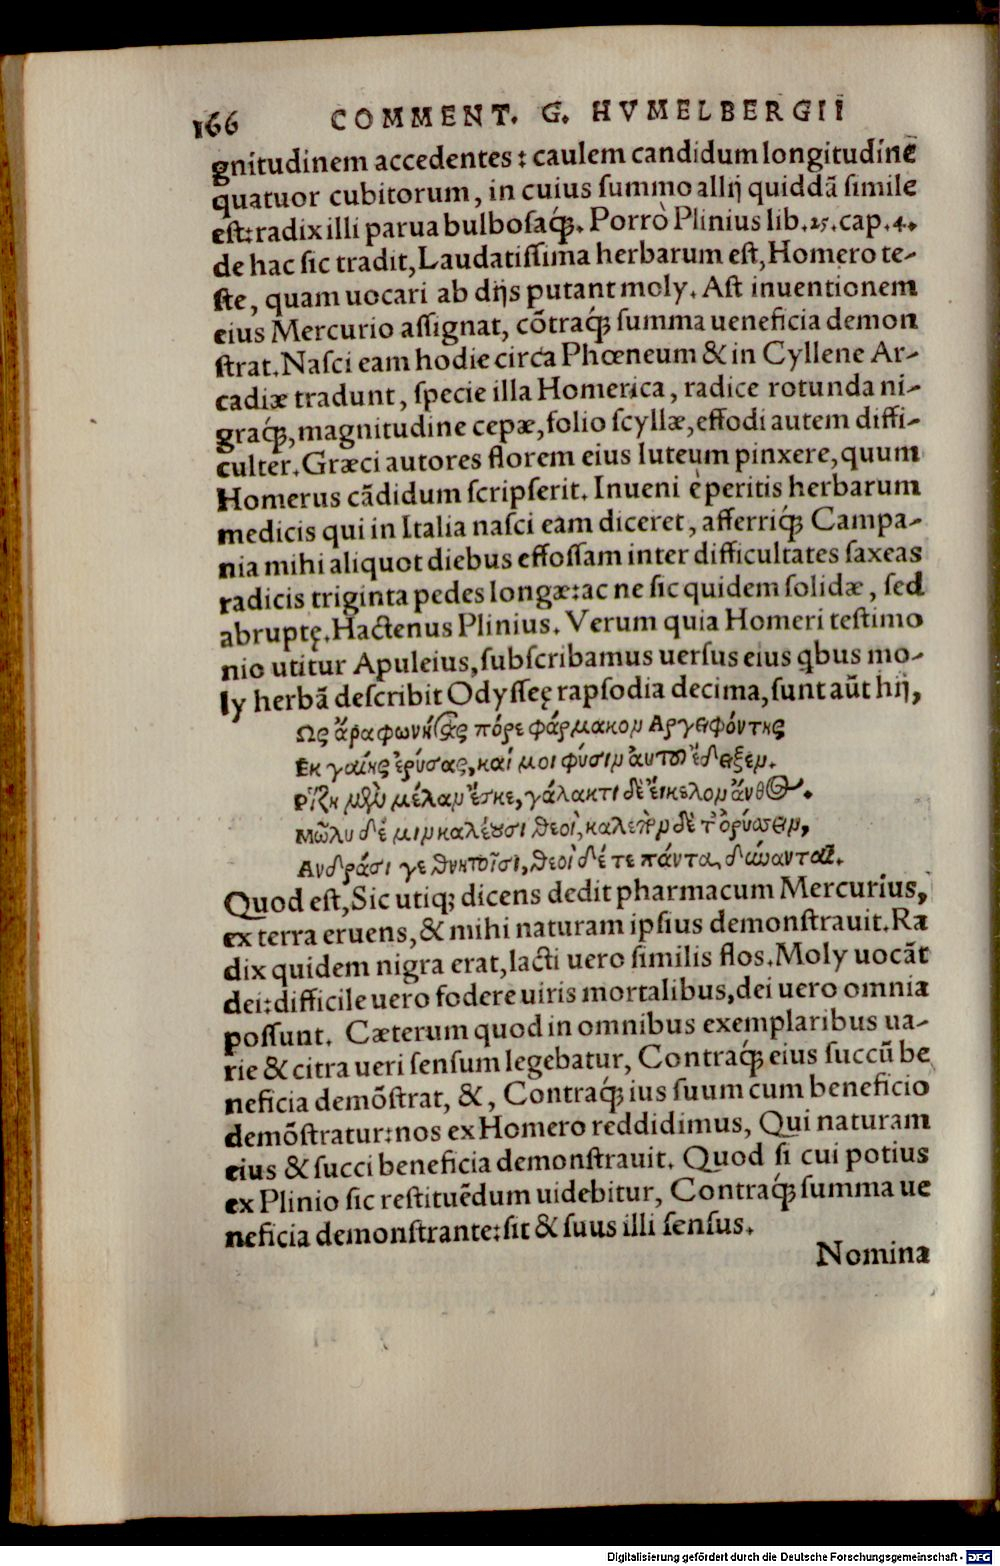 166 COMMENT. G. HVMELBERGII
gnitudinem accedentes: caulem candidum longitudine
quatuor cubitorum, in cuius summo allij quiddā simile
est: radix illi parua bulbosaq́;. Porrò Plinius lib. 25. cap. 4.
de hac sic tradit, Laudatissima herbarum est, Homero te-
ste, quam uocari ab dijs putant moly. Ast inuentionem
eius Mercurio assignat, cōtraq́; summa ueneficia demon
strat. Nasci eam hodie circa Phœneum & in Cyllene Ar-
cadiæ tradunt, specie illa Homerica, radice rotunda ni-
graq́;, magnitudine cepæ, folio scyllæ, effodi autem diffi-
culter. Græci autores florem eius luteum pinxere, quum
Homerus cādidum scripserit. Inueni è peritis herbarum
medicis qui in Italia nasci eam diceret, afferriq́; Campa-
nia mihi aliquot diebus effossam inter difficultates saxeas
radicis triginta pedes longæ: ac ne sic quidem solidæ, sed
abruptę. Hactenus Plinius. Verum quia Homeri testimo
nio utitur Apuleius, subscribamus uersus eius qbus mo-
ly herbā describit Odysseę rapsodia decima, sunt aūt hij,
Ως ἄρα φωνήσας πόρε φάρμακον Αργειφόντης
Εκ γαίης ἐρύσας, καί μοι φύσιν ἀυτοῦ ἔδειξεν.
Ρίζη μὲν μέλαν ἔσκε, γάλακτι δὲ ἔικελον ἄνθος.
Μῶλυ δέ μιν καλέουσι θεοὶ, καλεπὸν δέ τ' ὀρύσσειν,
Ανδράσι γε θνητοῖσι, θεοὶ δέ τε πάντα δύωανται.
Quod est, Sic utiq; dicens dedit pharmacum Mercurius,
ex terra eruens, & mihi naturam ipsius demonstrauit. Ra
dix quidem nigra erat, lacti uero similis flos. Moly uocāt
dei: difficile uero fodere uiris mortalibus, dei uero omnia
possunt. Cæterum quod in omnibus exemplaribus ua-
rie & citra ueri sensum legebatur, Contraq́; eius succū be
neficia demōstrat, &, Contraq́; ius suum cum beneficio
demōstratur: nos ex Homero reddidimus, Qui naturam
eius & succi beneficia demonstrauit. Quod si cui potius
ex Plinio sic restituēdum uidebitur, Contraq́; summa ue
neficia demonstrante: sit & suus illi sensus.
Nomina
Digitalisierung gefördert durch die Deutsche Forschungsgemeinschaft - DFG